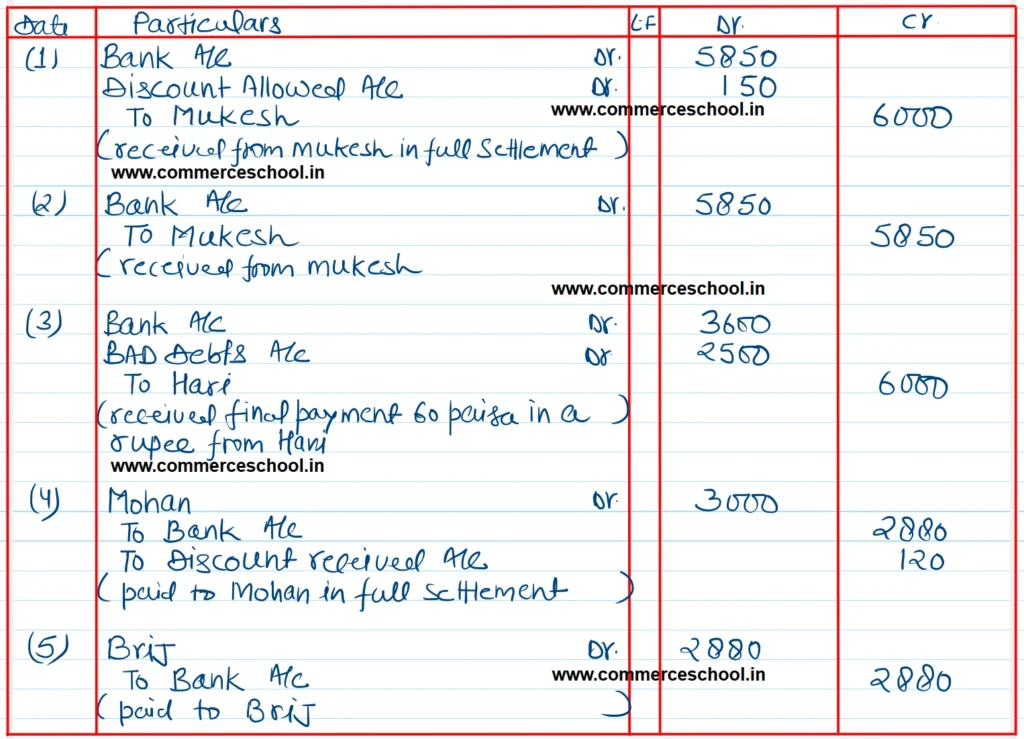 Date Particulars L.F Dr. Cr
(1) Bank A/c Dr. 5850
Discount Allowed A/c Dr. 150
www.commerceschool.in
To Mukesh 6000
(received from Mukesh in full settlement)
www.commerceschool.in
(2) Bank A/c Dr. 5850
To Mukesh 5850
(received from mukesh
www.commerceschool.in
(3) Bank A/c Dr. 3600
BAD Debts A/c Dr 2500
To Hari 6000
(received final payment 60 paisa in a)
rupee from Hari
www.commerceschool.in
(4) Mohan Dr. 3000
To Bank A/c 2880
To Discount received A/c 120
(paid to Mohan in full settlement)
(5) Brij Dr. 2880
To Bank A/c 2880
www.commerceschool.in
(paid to Brij)